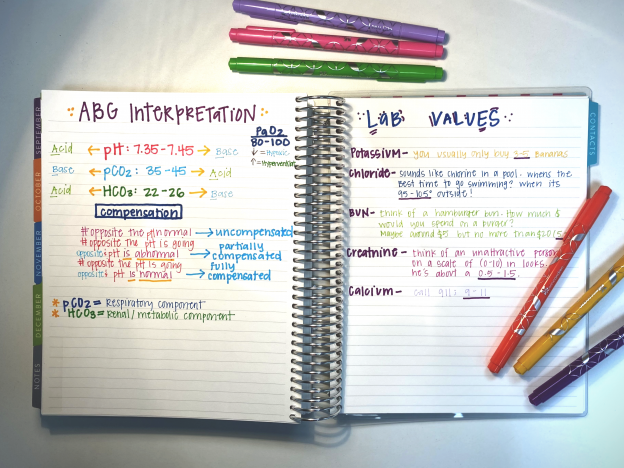 ABG Interpretation
PaO2
80-100
↓ = Hypoxic
↑ = Hyperventilation
Acid ← pH: 7.35-7.45 → Base
Base ← pCO2: 35-45 → Acid
Acid ← HCO3: 22-26 → Base
compensation
#opposite the abnormal → uncompensated
#opposite the pH is going
opposite & pH is abnormal → partially compensated
#opposite the pH is going
opposite & pH is normal → fully compensated
* pCO2 = Respiratory component
* HCO3 = Renal/metabolic component
SEPTEMBER
OCTOBER
NOVEMBER
DECEMBER
NOTES
LAB VALUES
Potassium- you usually only buy 3-5 bananas
Chloride- sounds like chlorine in a pool. whens the
Best time to go swimming? when its
95-105° outside!
BUN- think of a hamburger bun. How much $
would you spend on a burger?
Maybe around $5 but no more than $20
Creatnine- think of an unattractive person
on a scale of (0-10) in looks.
he's about a 0.5-1.5.
Calcium- call 911! 9-11
CONTACTS